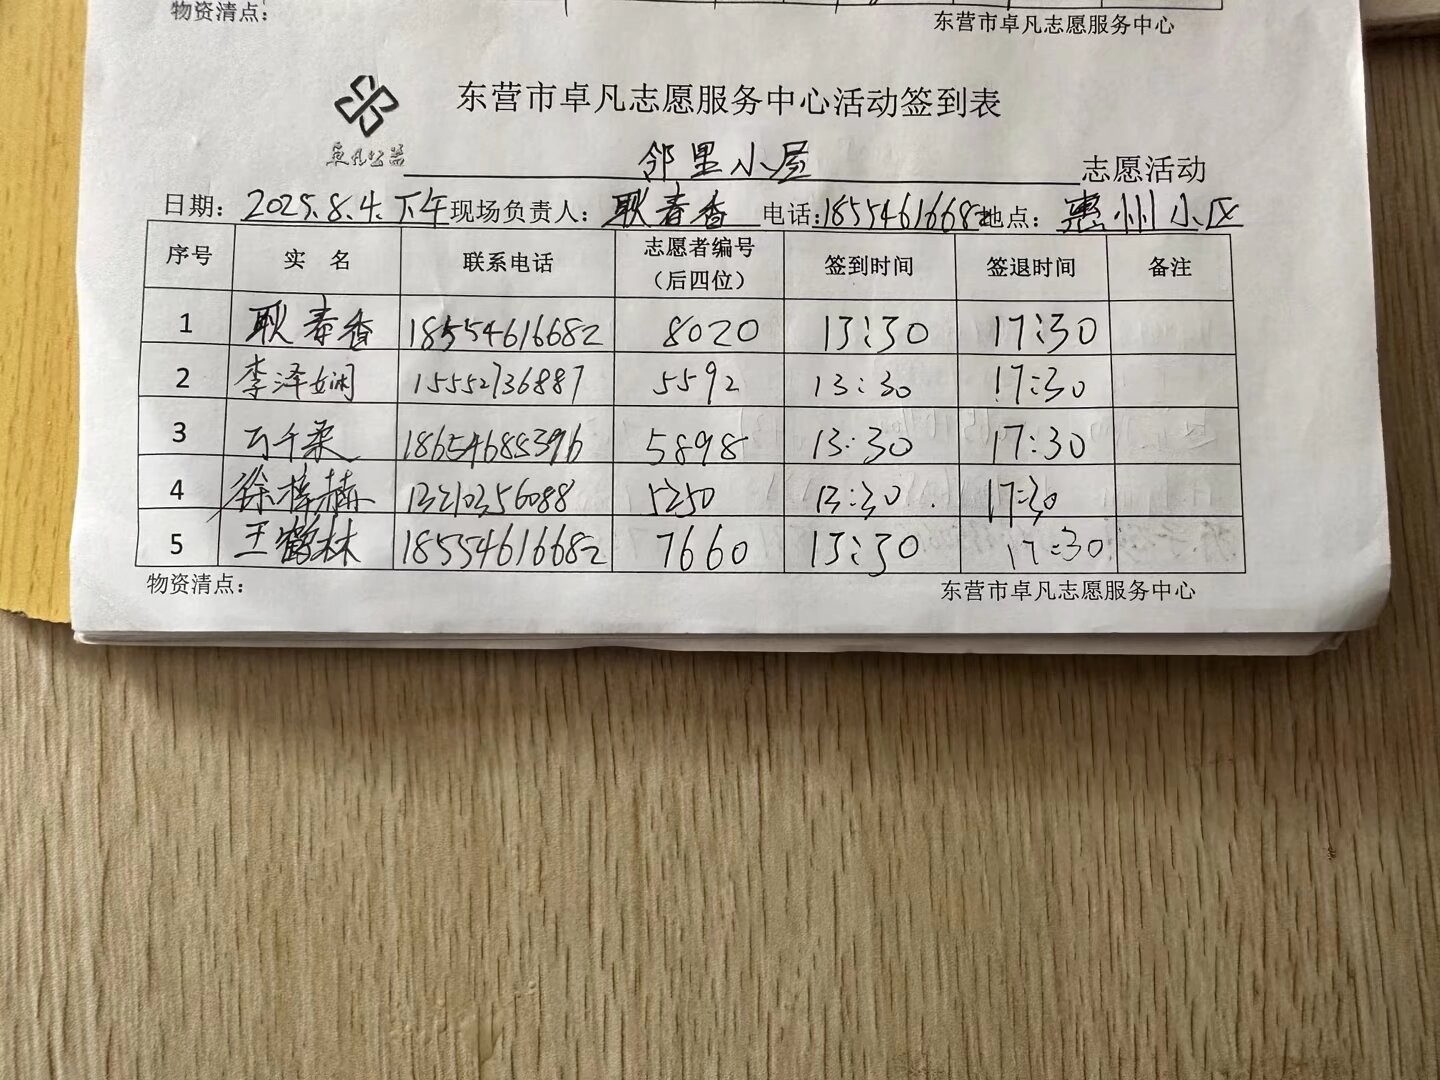 物资清点：
东营市卓凡志愿服务中心
东营市卓凡志愿服务中心活动签到表
卓凡公益
邻里小屋 志愿活动
日期：2025.8.4.下午 现场负责人：耿春香 电话：18554616682 地点：惠州小区
序号 实 名 联系电话 志愿者编号（后四位） 签到时间 签退时间 备注
1 耿春香 18554616682 8020 13:30 17:30
2 李泽娴 15552736887 5592 13:30 17:30
3 千柔 18654685396 5898 13:30 17:30
4 徐梓楠 13210356088 5250 13:30 17:30
5 王鹤林 18554616682 7660 13:30 17:30
物资清点：
东营市卓凡志愿服务中心